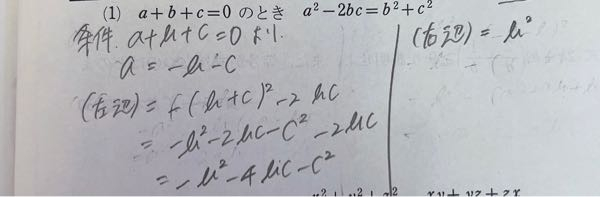 (1) a+b+c=0 のとき a²-2bc=b²+c²
条件 a+b+c=0 より.
a = -b-c
(左辺) = -(b+c)²-2bc
= -b²-2bc-c²-2bc
= -b²-4bc-c²
(右辺) = b²